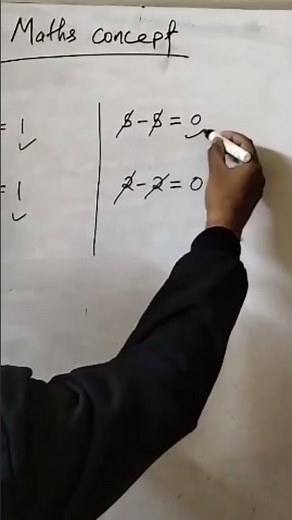 Maths concept
= 1
5 - 5 = 0
= 1
2 - 2 = 0